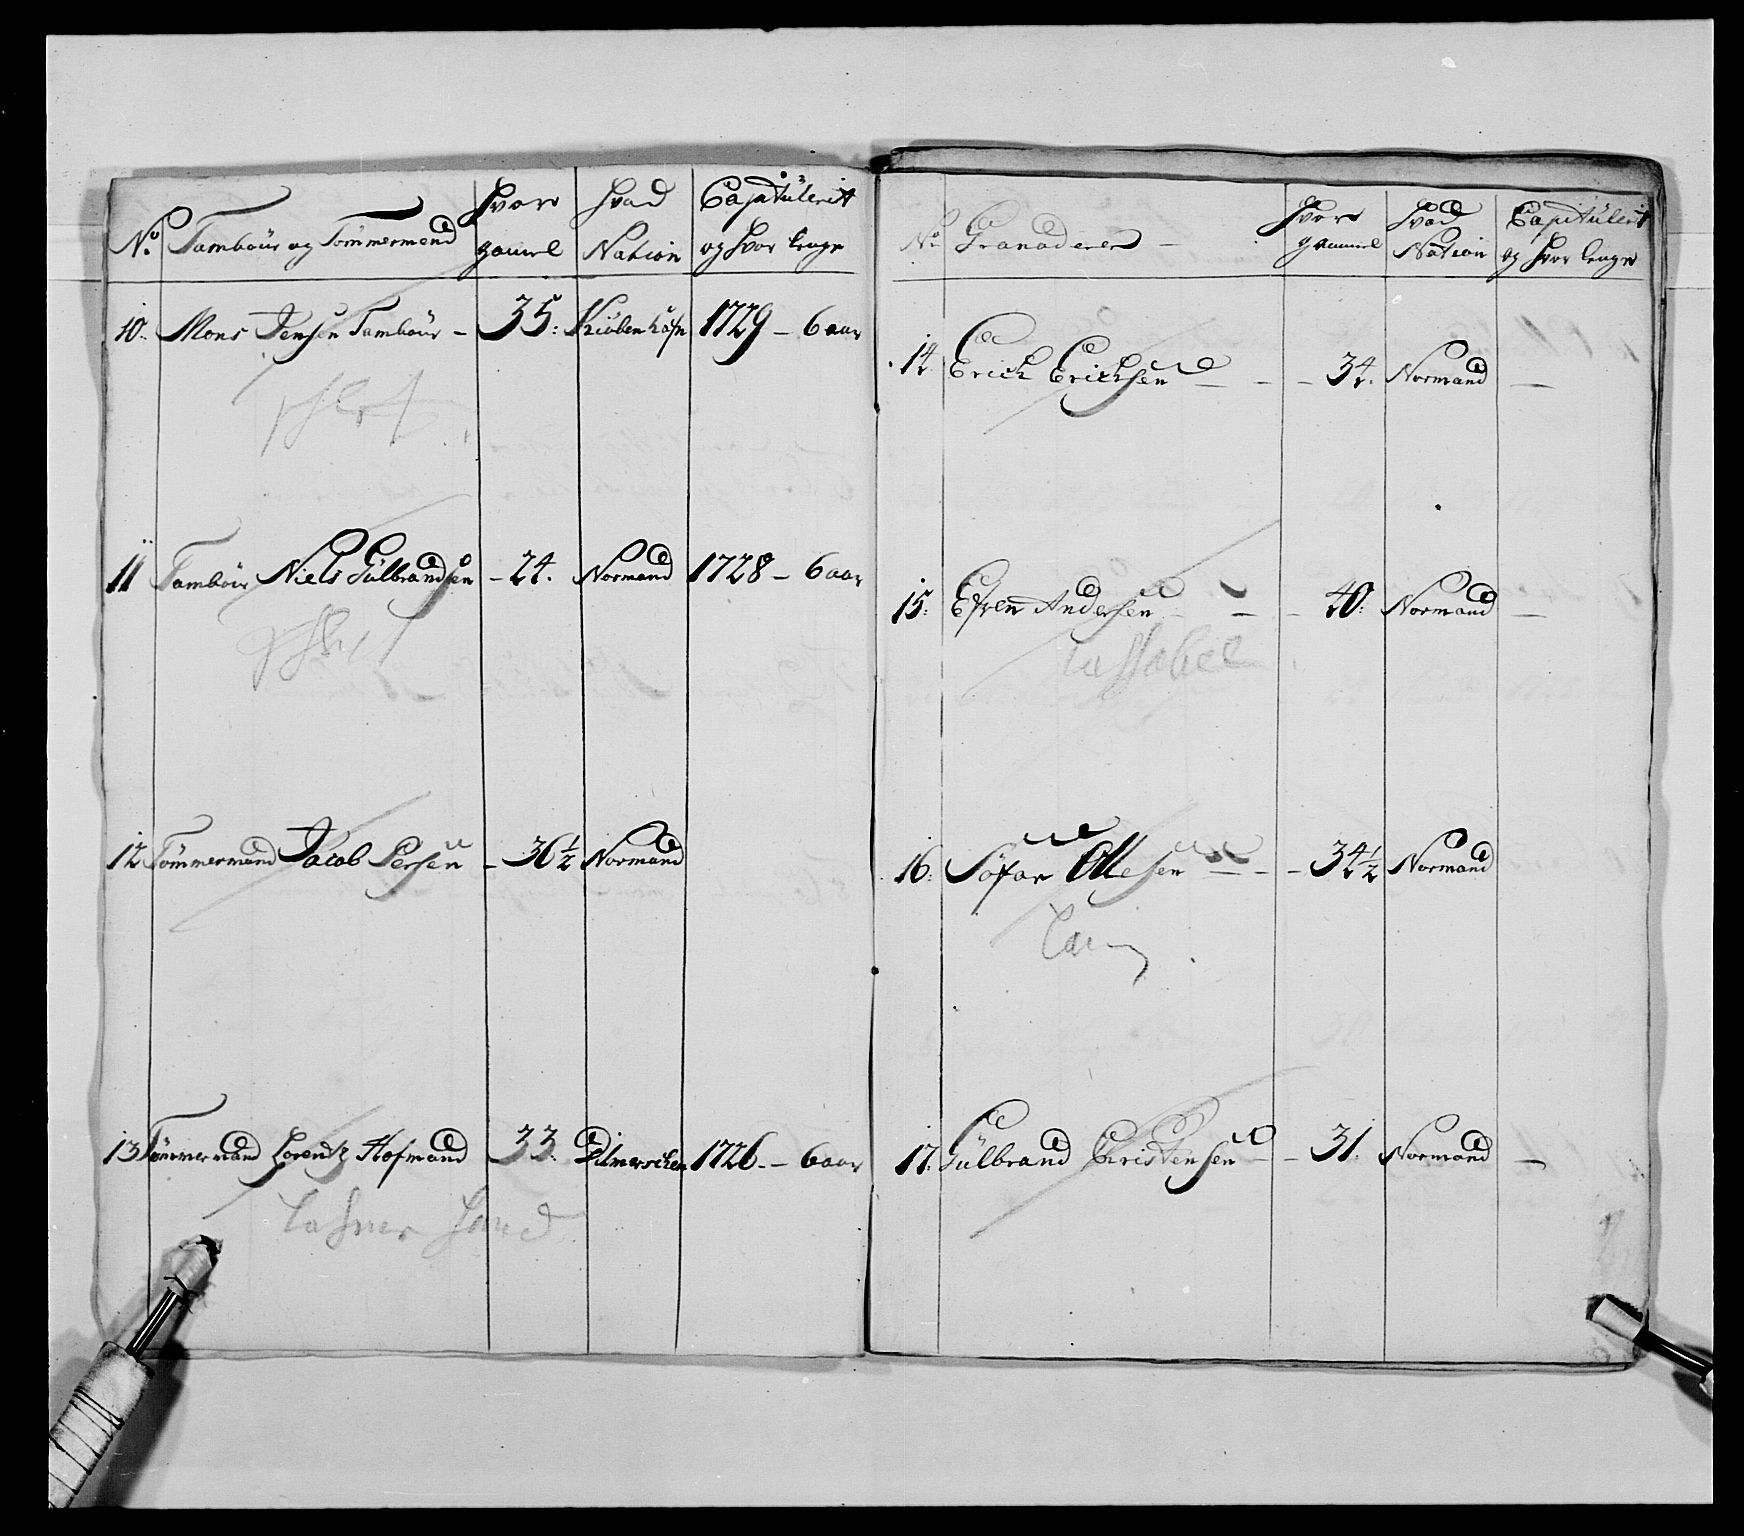 No. Tambour og Tömmermand Hvor gamel Hvad Nation Capitulerit og hvor lenge
10. Mons Jensen Tambour - 35: Kiöbenhafn 1729 - 6 aar
11 Tambour Niels Gülbrandsen - 24. Normand 1728 - 6 aar
12 Tömmermand Jacob Persen - 36 1/2 Normand
13 Tömmermand Lorentz Hofmand 33. Ditmerschen 1726. - 6 aar
No Granaderer - Hvor gammel Hvad Nation Capitulerit og hvor lenge
14 Erick Ericksen - - - 34. Normand -
15: Efven Andersen - - 40: Normand -
16: Söfar Ollesen - - - 34 1/2 Normand
17. Gülbrand Christensen - - 31. Normand -